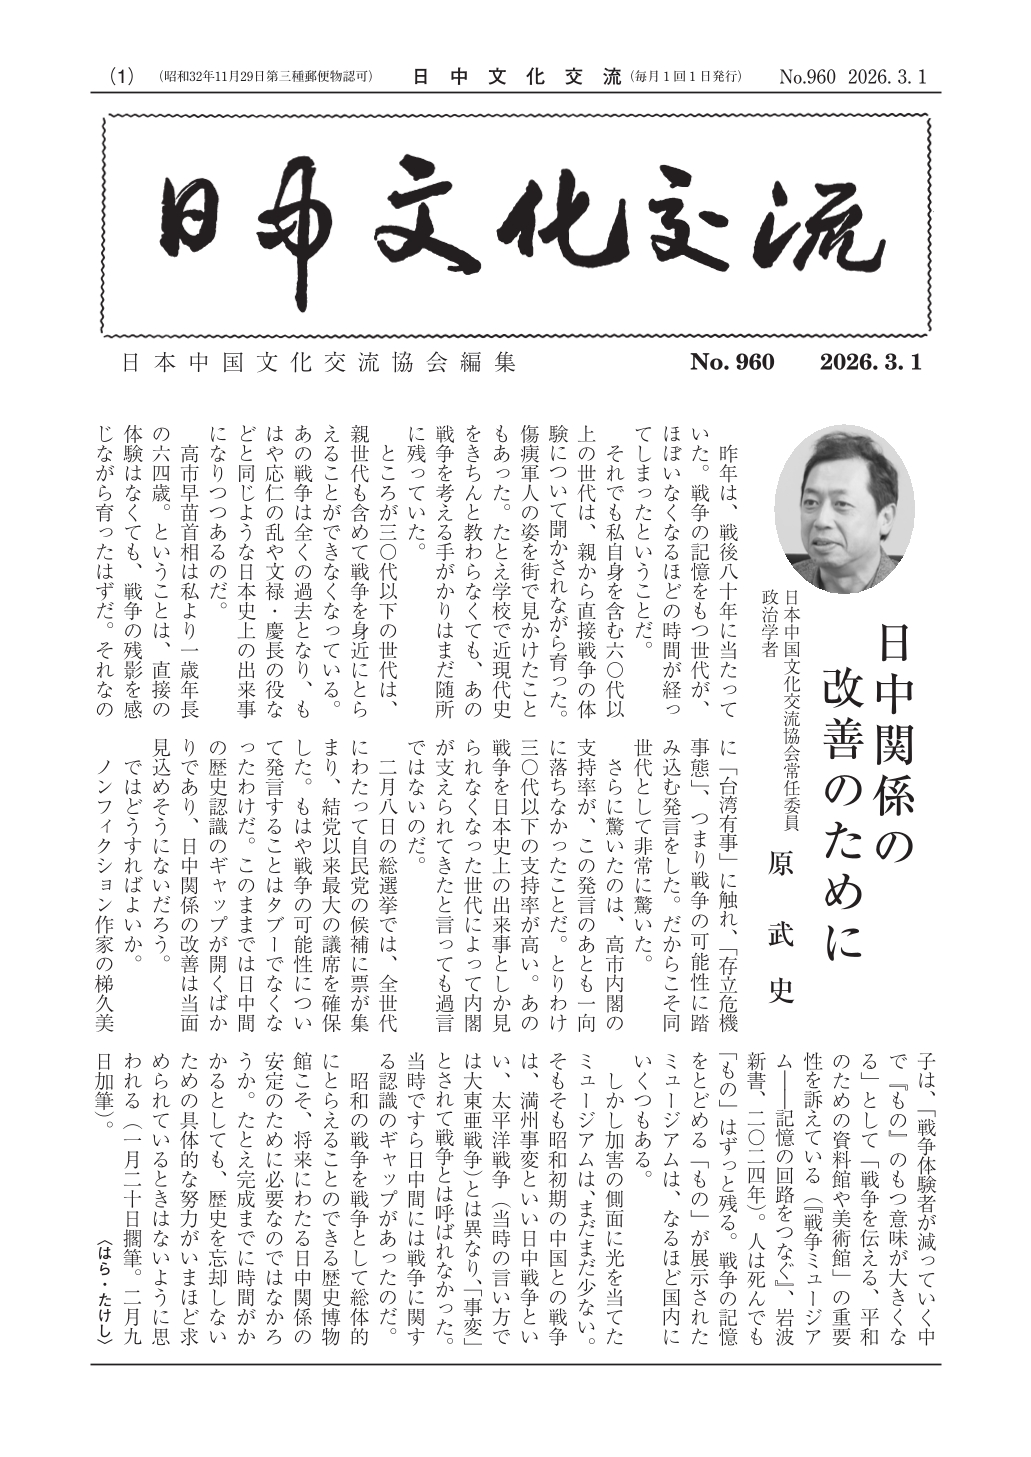 (1) （昭和32年11月29日第三種郵便物認可） 日中文化交流 （毎月1回1日発行） No.960 2026. 3. 1
日中文化交流
日本中国文化交流協会編集 No. 960 2026. 3. 1
日中関係の
改善のために
日本中国文化交流協会常任委員
政治学者
原 武史
昨年は、戦後八十年に当たって
いた。戦争の記憶をもつ世代が、
ほぼいなくなるほどの時間が経っ
てしまったということだ。
それでも私自身を含む六〇代以
上の世代は、親から直接戦争の体
験について聞かされながら育った。
傷痍軍人の姿を街で見かけたこと
もあった。たとえ学校で近現代史
をきちんと教わらなくても、あの
戦争を考える手がかりはまだ随所
に残っていた。
ところが三〇代以下の世代は、
親世代も含めて戦争を身近にとら
えることができなくなっている。
あの戦争は全くの過去となり、も
はや応仁の乱や文禄・慶長の役な
どと同じような日本史上の出来事
になりつつあるのだ。
高市早苗首相は私より一歳年長
の六四歳。ということは、直接の
体験はなくても、戦争の残影を感
じながら育ったはずだ。それなの
に「台湾有事」に触れ、「存立危機
事態」、つまり戦争の可能性に踏
み込む発言をした。だからこそ同
世代として非常に驚いた。
さらに驚いたのは、高市内閣の
支持率が、この発言のあとも一向
に落ちなかったことだ。とりわけ
三〇代以下の支持率が高い。あの
戦争を日本史上の出来事としか見
られなくなった世代によって内閣
が支えられてきたと言っても過言
ではないのだ。
二月八日の総選挙では、全世代
にわたって自民党の候補に票が集
まり、結党以来最大の議席を確保
した。もはや戦争の可能性につい
て発言することはタブーでなくな
ったわけだ。このままでは日中間
の歴史認識のギャップが開くばか
りであり、日中関係の改善は当面
見込めそうにないだろう。
ではどうすればよいか。
ノンフィクション作家の梯久美
子は、「戦争体験者が減っていく中
で『もの』のもつ意味が大きくな
る」として「戦争を伝える、平和
のための資料館や美術館」の重要
性を訴えている（『戦争ミュージア
ム――記憶の回路をつなぐ』、岩波
新書、二〇二四年）。人は死んでも
「もの」はずっと残る。戦争の記憶
をとどめる「もの」が展示された
ミュージアムは、なるほど国内に
いくつもある。
しかし加害の側面に光を当てた
ミュージアムは、まだまだ少ない。
そもそも昭和初期の中国との戦争
は、満州事変といい日中戦争とい
い、太平洋戦争（当時の言い方で
は大東亜戦争）とは異なり、「事変」
とされて戦争とは呼ばれなかった。
当時ですら日中間には戦争に関す
る認識のギャップがあったのだ。
昭和の戦争を戦争として総体的
にとらえることのできる歴史博物
館こそ、将来にわたる日中関係の
安定のために必要なのではなかろ
うか。たとえ完成までに時間がか
かるとしても、歴史を忘却しない
ための具体的な努力がいまほど求
められているときはないように思
われる（一月二十日擱筆。二月九
日加筆）。
〈はら・たけし〉